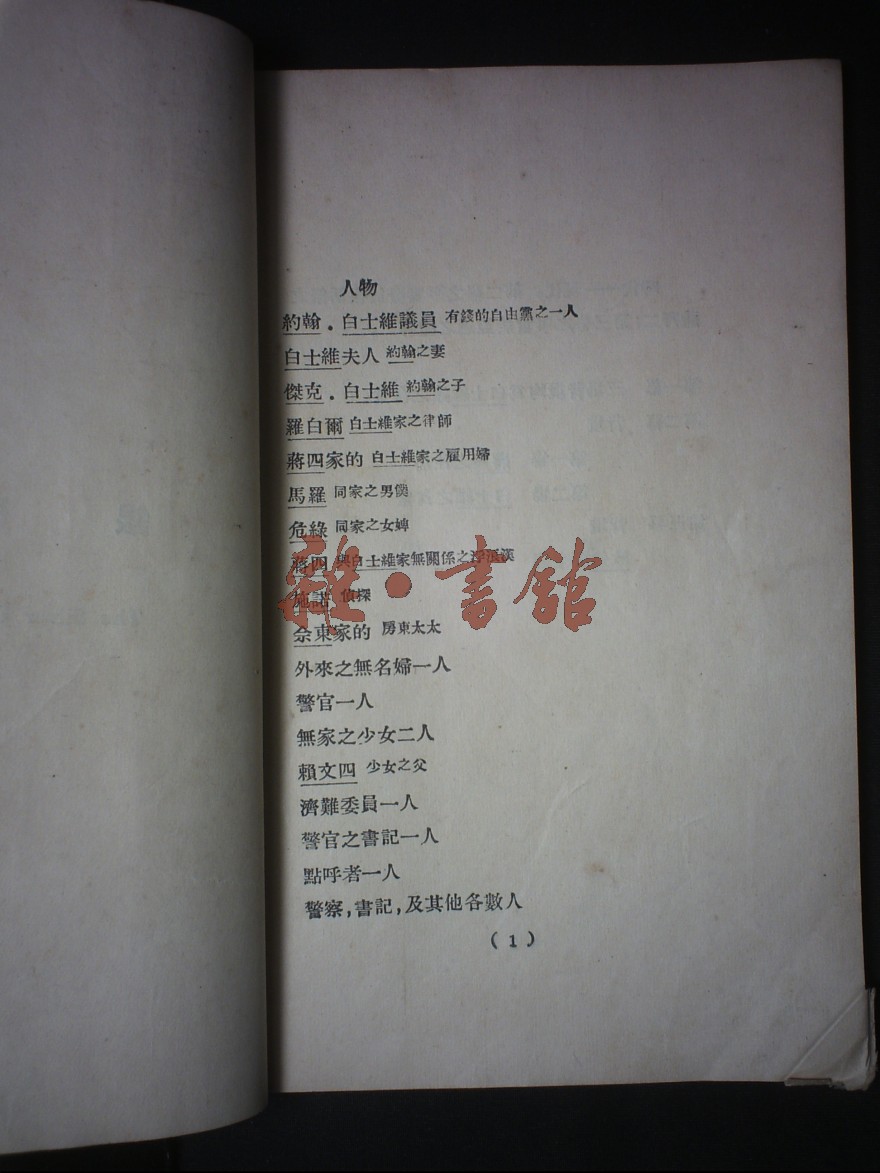 人物
約翰．白士維議員 有錢的自由黨之一人
白士維夫人 約翰之妻
傑克．白士維 約翰之子
羅白爾 白士維家之律師
蔣四家的 白士維家之雇用婦
馬羅 同家之男僕
危綠 同家之女婢
蔣四 與白士維家無關係之浮浪漢
施諾 偵探
佘東家的 房東太太
外來之無名婦一人
警官一人
無家之少女二人
賴文四 少女之父
濟難委員一人
警官之書記一人
點呼者一人
警察，書記，及其他各數人
（1）
雜·書館